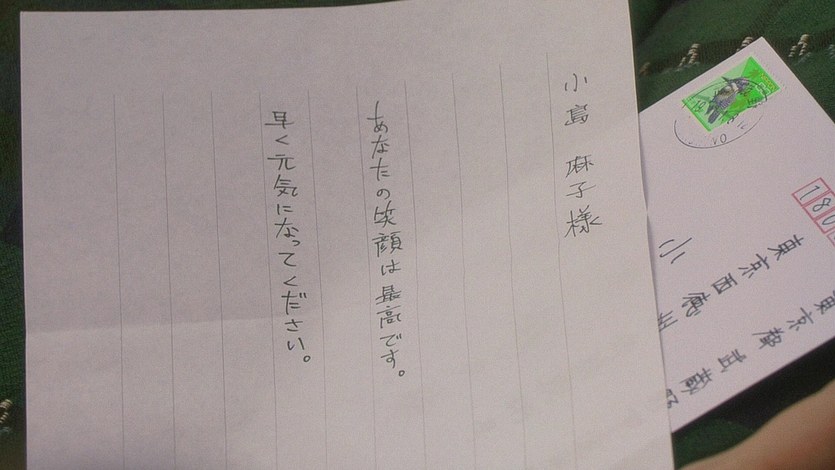 小島 麻子様
あなたの笑顔は最高です。
早く元気になってください。
180
東京
東京西
小